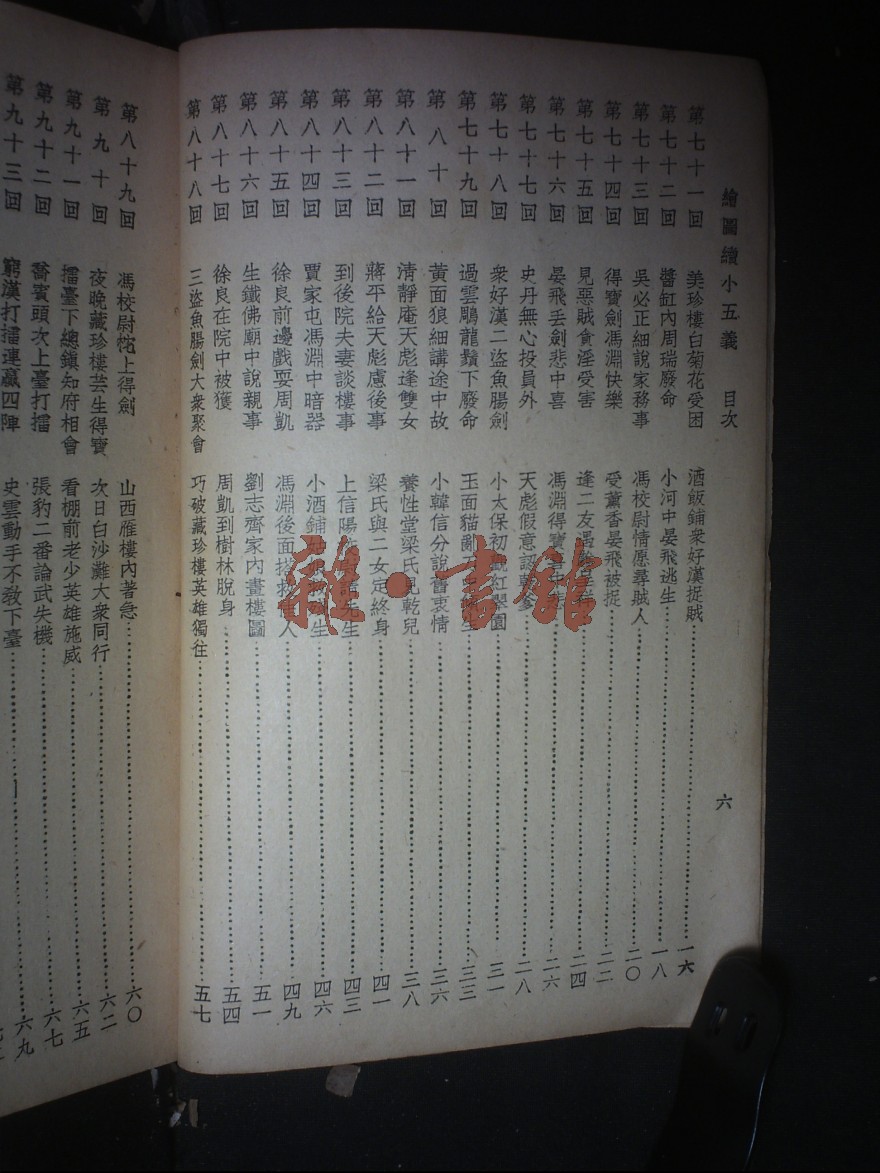 繪圖續小五義 目次 六
第七十一回 美珍樓白菊花受困 酒飯鋪衆好漢捉賊 一六
第七十二回 醬缸內周瑞廢命 小河中晏飛逃生 一八
第七十三回 吳必正細說家務事 馮校尉情愿尋賊人 二〇
第七十四回 得寶劍馮淵快樂 受薰香晏飛被捉 二二
第七十五回 見惡賊貪淫受害 逢二友 二四
第七十六回 晏飛丢劍悲中喜 馮淵得寶 二六
第七十七回 史丹無心投員外 天彪假意認 二八
第七十八回 衆好漢二盜魚腸劍 小太保初 紅翠園 三一
第七十九回 過雲鵰龍鬚下廢命 玉面貓亂 生 三三
第八十回 黃面狼細講途中故 小韓信分說舊衷情 三六
第八十一回 清靜庵天彪逢雙女 養性堂梁氏見乾兒 三八
第八十二回 蔣平給天彪慮後事 梁氏與二女定終身 四一
第八十三回 到後院夫妻談樓事 上信陽 先生 四三
第八十四回 賈家屯馮淵中暗器 小酒鋪 生 四六
第八十五回 徐良前邊戲耍周凱 馮淵後面搭救 人 四九
第八十六回 生鐵佛廟中說親事 劉志齊家內畫樓圖 五一
第八十七回 徐良在院中被獲 周凱到樹林脫身 五四
第八十八回 三盜魚腸劍大衆聚會 巧破藏珍樓英雄獨往 五七
第八十九回 馮校尉柁上得劍 山西雁樓內著急 六〇
第九十回 夜晚藏珍樓芸生得寶 次日白沙灘大衆同行 六二
第九十一回 擂臺下總鎮知府相會 看棚前老少英雄施威 六五
第九十二回 喬賓頭次上臺打擂 張豹二番論武失機 六七
第九十三回 窮漢打擂連贏四陣 史雲動手不敎下臺 六九
雜·書館